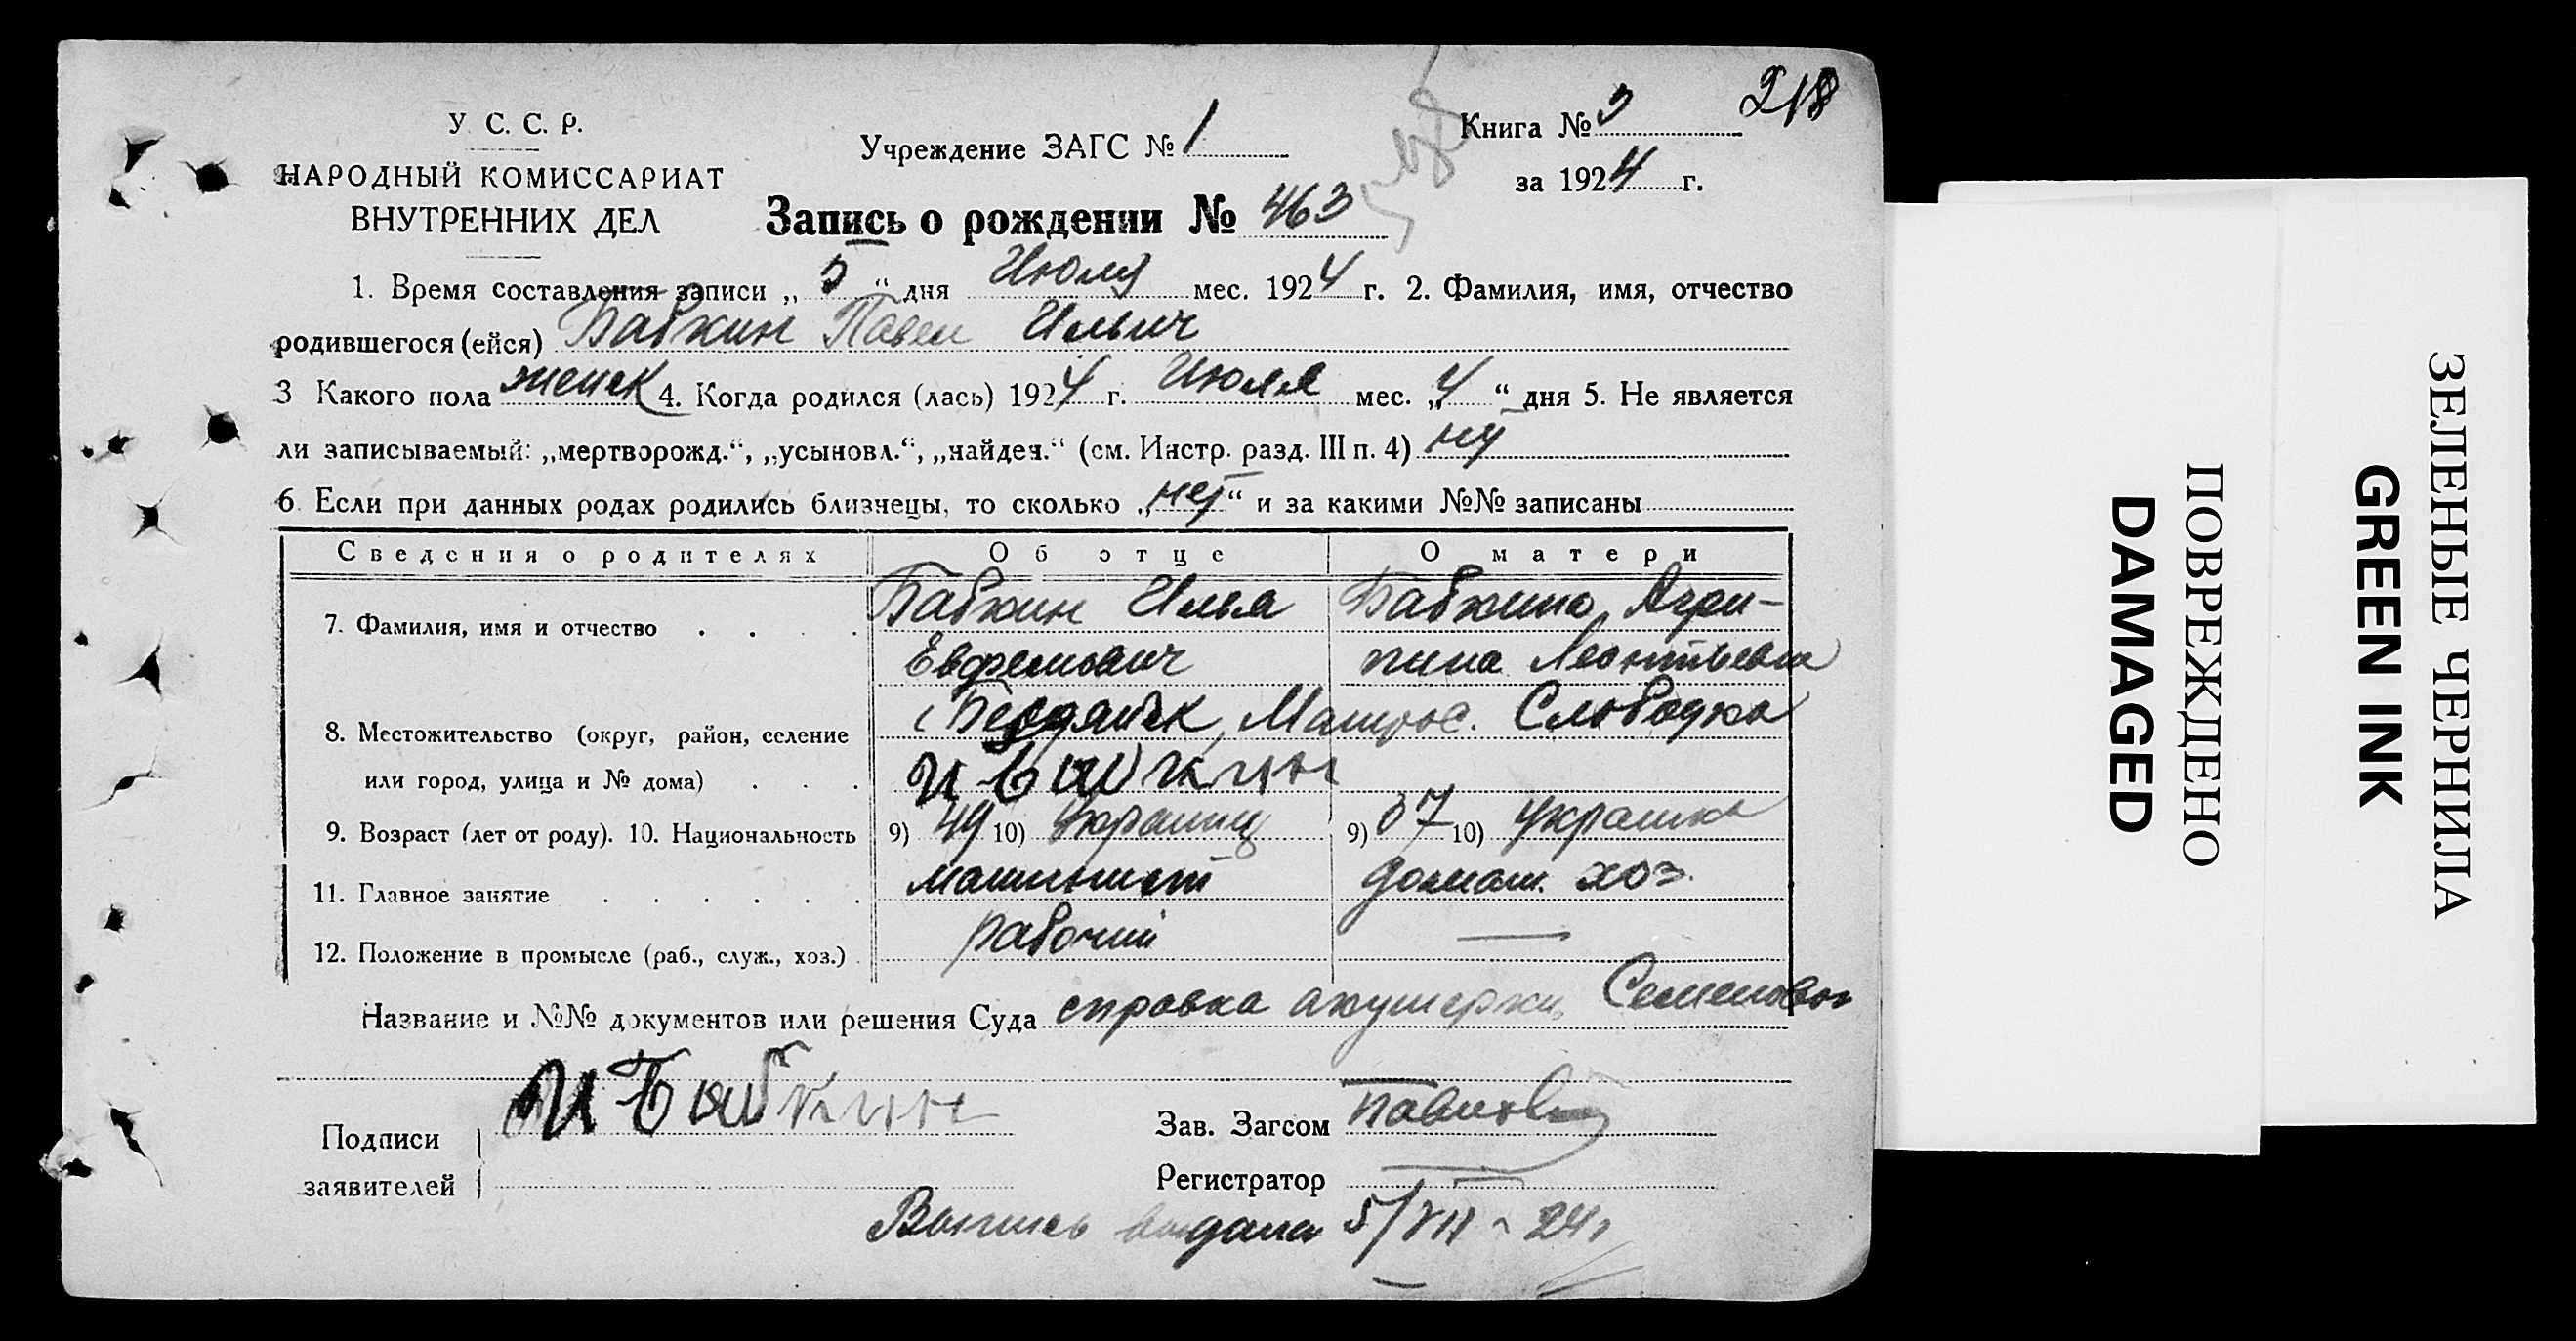 218
У. С. С. Р.
НАРОДНЫЙ КОМИССАРИАТ
ВНУТРЕННИХ ДЕЛ
Учреждение ЗАГС № 1
Книга № 3
за 1924 г.
Запись о рождении № 463
1. Время составления записи „5“ дня Июля мес. 1924 г. 2. Фамилия, имя, отчество
родившегося (ейся) Бабкин Павел Ильич
3 Какого пола женск 4. Когда родился (лась) 1924 г. Июля мес. „4“ дня 5. Не является
ли записываемый: „мертворожд.“, „усыновл.“, „найден.“ (см. Инстр. разд. III п. 4)
6. Если при данных родах родились близнецы, то сколько „нет“ и за какими №№ записаны
Сведения о родителях Об отце О матери
7. Фамилия, имя и отчество
Бабкин Илья
Евфемович
Бабкина Агри-
пина Леонтьевна
8. Местожительство (округ, район, селение
или город, улица и № дома)
Бердянск, Матрос. Слободка
9. Возраст (лет от роду). 10. Национальность 9) 49 10) Украинц 9) 37 10) Украинка
11. Главное занятие машинист домаш. хоз.
12. Положение в промысле (раб., служ., хоз.) рабочий —
Название и №№ документов или решения Суда справка акушерки Семеновой
Подписи
заявителей
И Бабкин
Зав. Загсом
Регистратор
Выпись выдана 5/VII - 24 г
ПОВРЕЖДЕНО
DAMAGED
ЗЕЛЕНЫЕ ЧЕРНИЛА
GREEN INK